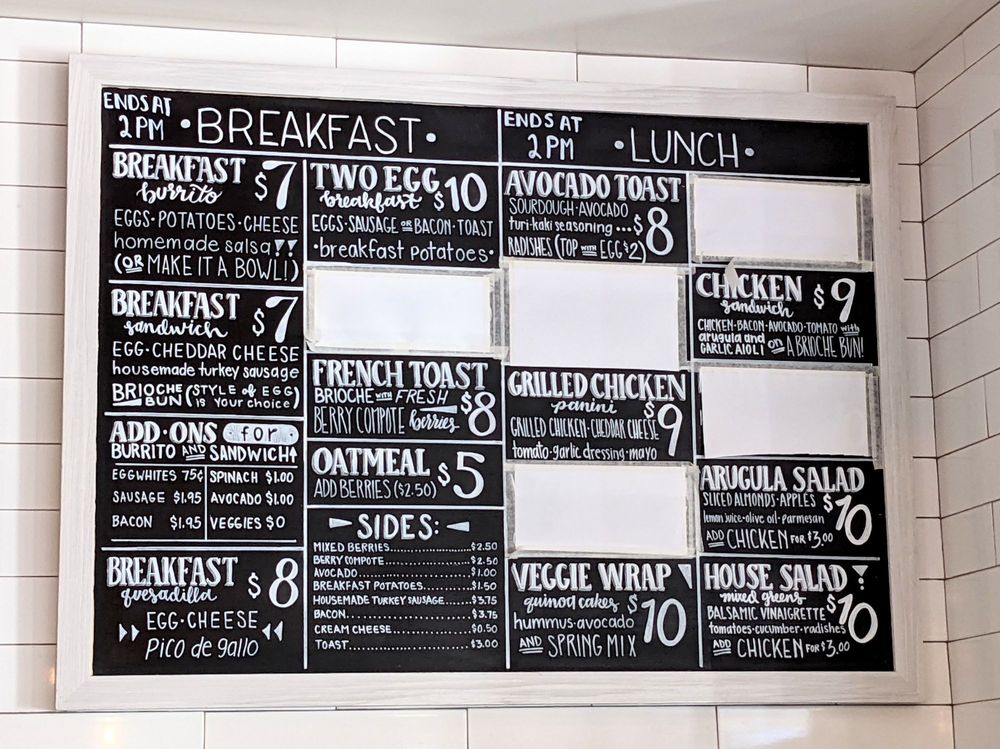 ENDS AT
2PM
•BREAKFAST•
BREAKFAST
burrito
$7
EGGS•POTATOES•CHEESE
homemade salsa!!
(OR MAKE IT A BOWL!)
BREAKFAST
sandwich
$7
EGG•CHEDDAR CHEESE
housemade turkey sausage
BRIOCHE BUN (STYLE of EGG is Your choice)
ADD•ONS for
BURRITO AND SANDWICH↑
EGGWHITES 75¢
SAUSAGE $1.95
BACON $1.95
SPINACH $1.00
AVOCADO $1.00
VEGGIES $0
BREAKFAST
quesadilla
$8
EGG•CHEESE
Pico de gallo
TWO EGG
breakfast
$10
EGGS•SAUSAGE OR BACON•TOAST
•breakfast potatoes•
FRENCH TOAST
BRIOCHE WITH FRESH
BERRY COMPOTE berries
$8
OATMEAL
ADD BERRIES ($2.50)
$5
SIDES:
MIXED BERRIES..................$2.50
BERRY COMPOTE..................$2.50
AVOCADO..................$1.00
BREAKFAST POTATOES..................$1.50
HOUSEMADE TURKEY SAUSAGE..................$3.75
BACON..................$3.75
CREAM CHEESE..................$0.50
TOAST..................$3.00
ENDS AT
2PM
•LUNCH•
AVOCADO TOAST
SOURDOUGH•AVOCADO
furi-kaki seasoning...
RADISHES (TOP WITH EGG $2)
$8
GRILLED CHICKEN
panini
$9
GRILLED CHICKEN•CHEDDAR CHEESE
tomato•garlic dressing•mayo
VEGGIE WRAP
quinoa cakes
$10
hummus•avocado
AND SPRING MIX
CHICKEN
sandwich
$9
CHICKEN•BACON•AVOCADO•TOMATO with
arugula and
GARLIC AIOLI on A BRIOCHE BUN!
ARUGULA SALAD
SLICED ALMONDS•APPLES
lemon juice•olive oil•parmesan
$10
ADD CHICKEN FOR $3.00
HOUSE SALAD
mixed greens
BALSAMIC VINAIGRETTE
tomatoes•cucumber•radishes
$10
ADD CHICKEN FOR $3.00